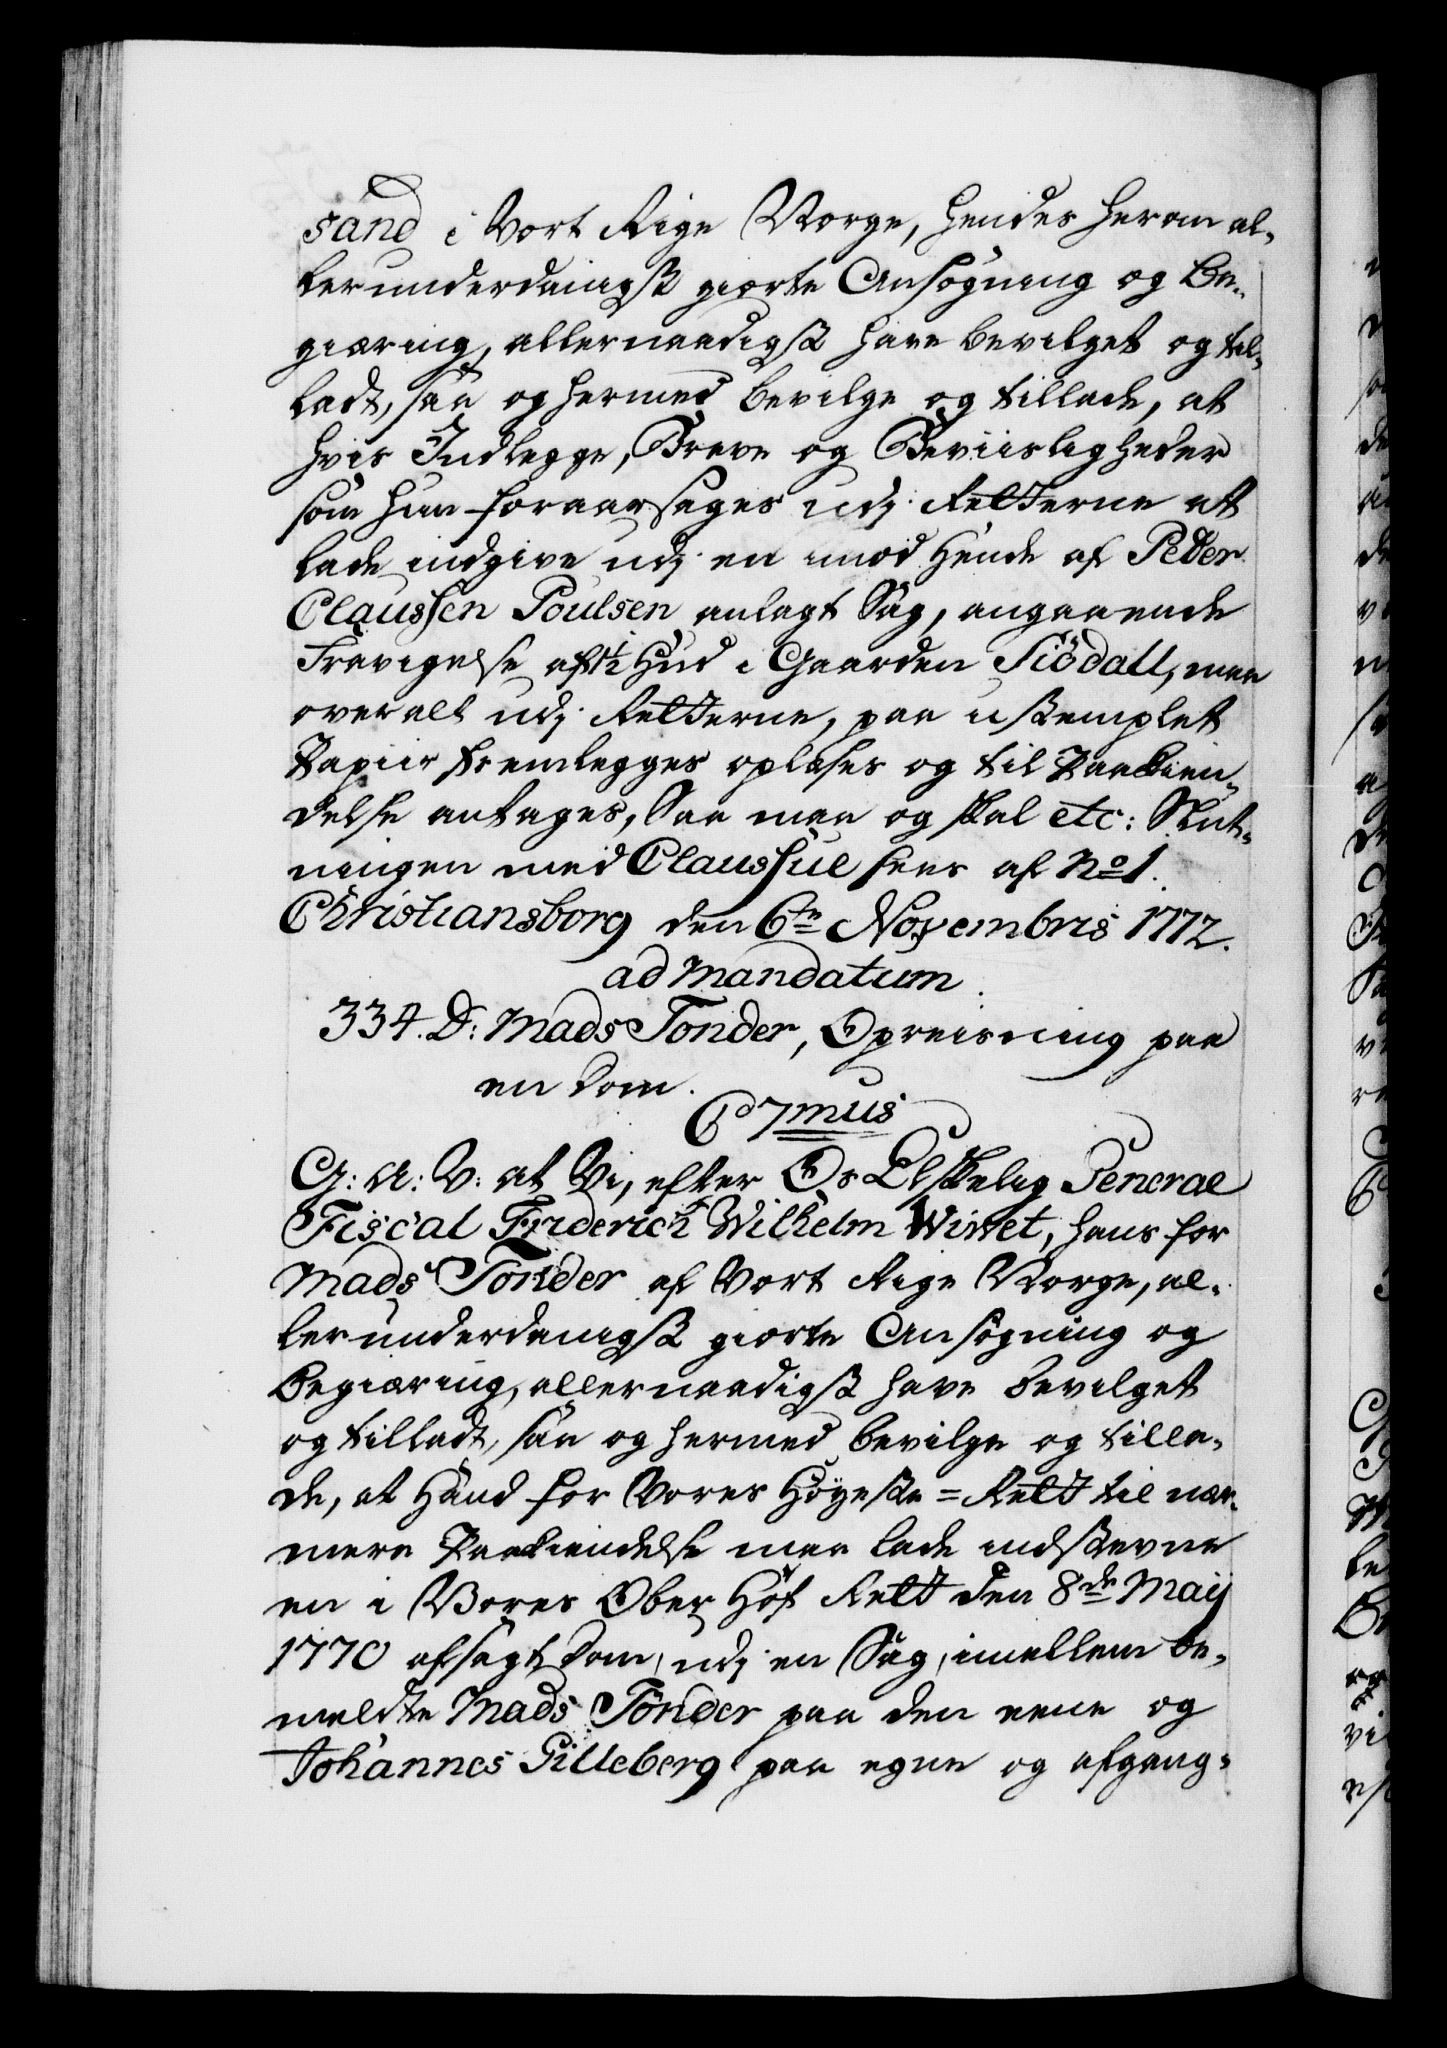 sand i Vort Rige Norge, hendes herom al-
lerunderdanigst giorte Ansøgning og Be-
giæring, allernaadigst have bevilget og til-
ladt, saa og hermed bevilge og tillade, at
hvis Indlegge, Breve og Beviisligheder
som hun foraarsages udj Retterne at
lade indgive udj en imod Hende af Peder
Claussen Poulsen anlagt Sag, angaaende
Fravigelse af 1½ Hud i Gaarden Siödall, maa
overalt udj Retterne, paa ustemplet
Papiir fremlegges oplæses og til Paakien-
delse antages, Saa maa og skal etc: Slut-
ningen med Claussul sees af No 1.
Christiansborg den 6te Novembris 1772.
ad Mandatum.
334. D: Mads Tonder, Opreisning paa
en Dom.
C 7mus
G: A: V: at Vi, efter Os Elskelig General
Fiscal Friderich Wilhelm Wivet, hans for
Mads Tonder af Vort Rige Norge, al-
lerunderdanigst giorte Ansøgning og
Begiæring, allernaadigst have bevilget
og tilladt, saa og hermed bevilge og tilla-
de, at Hand for Vores Høyeste-Rett til nær-
mere Paakiendelse maa lade indstevne
en i Vores Ober Hof Rett den 8de Maij
1770 afsagt Dom, udj en Sag, imellem be-
meldte Mads Tonder paa den eene og
Johannes Gilleberg paa egne og afgang-